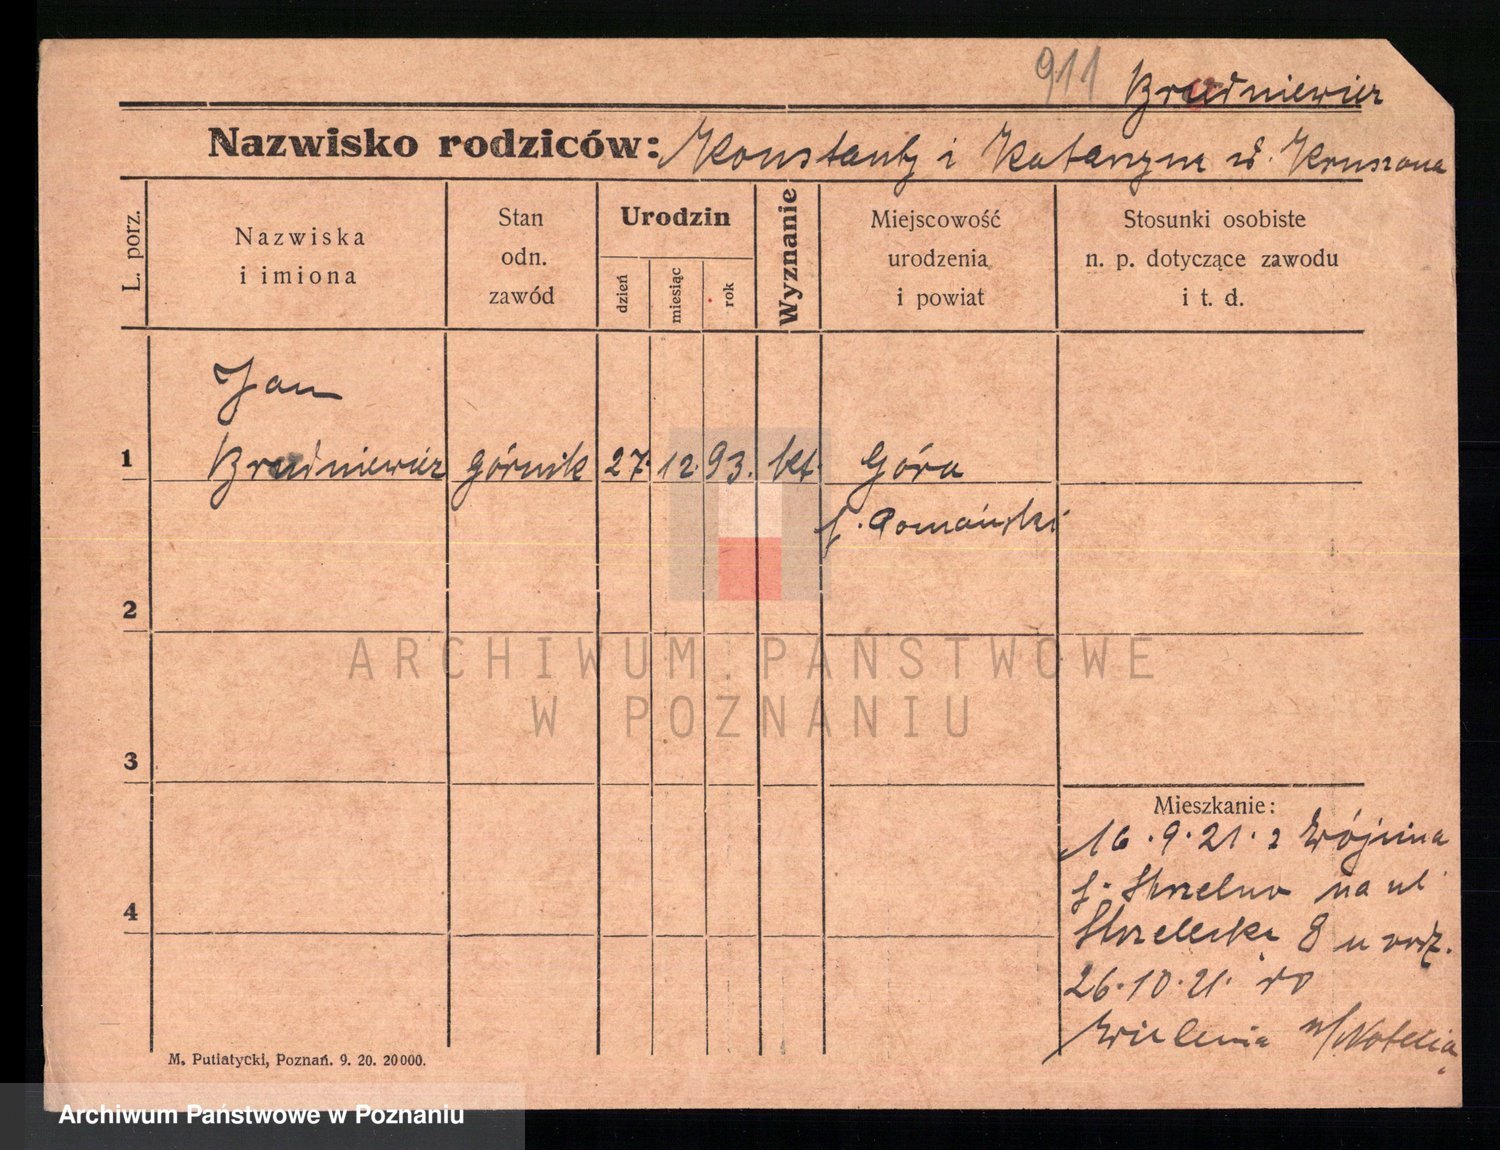 911 Brudniewicz
Nazwisko rodziców: Konstanty i Katarzyna d. Kruszona
L. porz.
Nazwiska
i imiona
Stan
odn.
zawód
Urodzin
dzień
miesiąc
rok
Wyznanie
Miejscowość
urodzenia
i powiat
Stosunki osobiste
n. p. dotyczące zawodu
i t. d.
Jan
1 Brudniewicz górnik 27. 12. 93. kt. Góra
Poznański
2
3
4
Mieszkanie:
16.9.21. z Wójcina
Strzelno na ul
Strzelecka 8 u rodz.
26.10.21. do
Wielenia n/Notecią
M. Putiatycki, Poznań. 9. 20. 20000.
ARCHIWUM PAŃSTWOWE
W POZNANIU
Archiwum Państwowe w Poznaniu